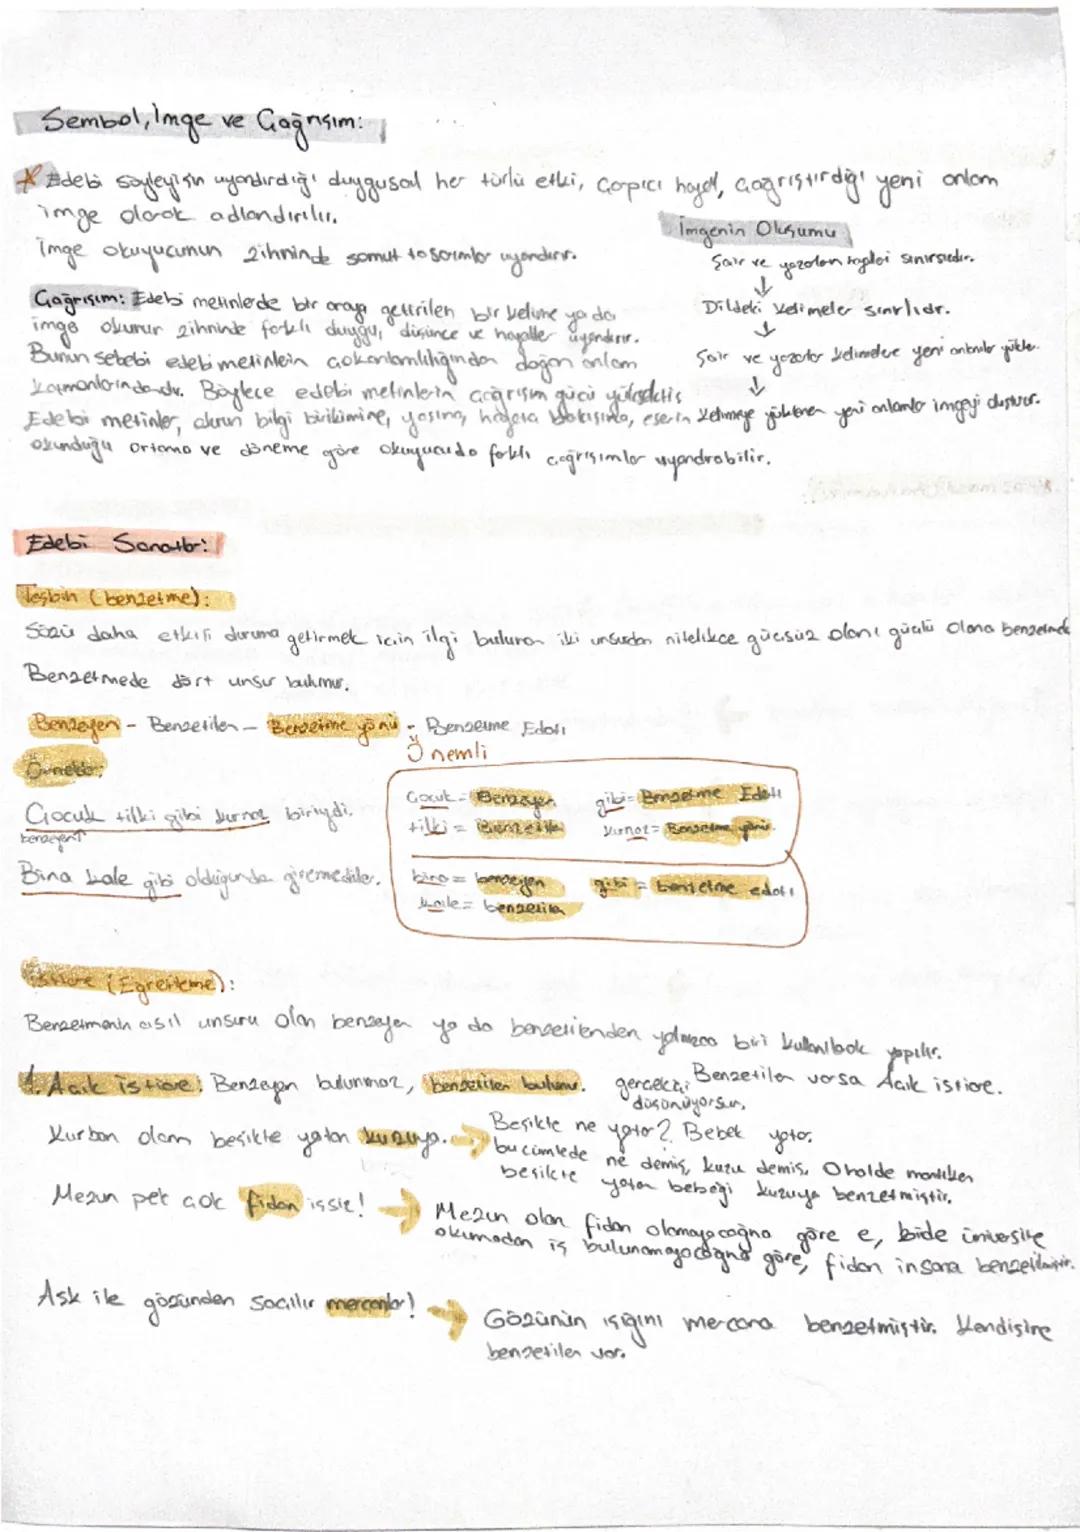 Sembol, İmge ve Çağrışım:
Edebi söyleyişin uyandırdığı duygusal her türlü etki, çarpıcı hayal, çağrıştırdığı yeni anlam
imge olarak adlandırılır.
İmge okuyucunun zihninde somut tasarımlar uyandırır.
İmgenin Oluşumu
Şair ve yazarların hayalleri sınırsızdır.
↓
Dildeki kelimeler sınırlıdır.
↓
Şair ve yazarlar kelimelere yeni anlamlar yükler.
↓
Kelimeye yüklenen yeni anlamlar imgeyi oluşturur.
Çağrışım: Edebi metinlerde bir araya getirilen bir kelime ya da
imge okunur zihninde farklı duygu, düşünce ve hayaller uyandırır.
Bunun sebebi edebi metinlerin çokanlamlılığından doğan anlam
katmanlarındandır. Böylece edebi metinlerin çağrışım gücü yüksektir.
Edebi metinler, okurun bilgi birikimine, yaşına, hayata bakışına, eserin
okunduğu ortama ve döneme göre okuyucuda farklı çağrışımlar uyandırabilir.
Edebi Sanatlar:
Teşbih (benzetme):
Sözü daha etkili duruma getirmek için ilgi bulunan iki unsurdan nitelikce güçsüz olanı güçlü olana benzetmek
Benzetmede dört unsur bulunur.
Benzeyen - Benzetilen - Benzetme yönü - Benzetme Edatı
Önemli
Örnekler:
Çocuk tilki gibi kurnaz biriydi.
benzeyen↑
Bina kale gibi olduğundan giremediler.
Çocuk = Benzeyen gibi = Benzetme Edatı
tilki = Benzetilen kurnaz = Benzetme yönü.
bina = benzeyen gibi = benzetme edatı
kale = benzetilen
İstiare (Eğretileme):
Benzetmenin asıl unsuru olan benzeyen ya da benzetilenden yalnızca biri kullanılarak yapılır.
1. Açık istiare: Benzeyen bulunmaz, benzetilen bulunur.
Benzetilen varsa Açık istiare.
gerçekçi
düşünüyorsun,
Kurban olam beşikte yatan kuzuya. →
Beşikte ne yatar? Bebek yatar.
bu cümlede ne demiş, kuzu demiş. O halde mantıken
beşikte yatan bebeği kuzuya benzetmiştir.
Mezun pek çok fidan işsiz! →
Mezun olan fidan olamayacağına göre e, bide üniversite
okumadan iş bulunamayacağına göre, fidan insana benzetilmiştir.
Aşk ile gözünden saçılır mercanlar! →
Gözünün ışığını mercana benzetmiştir. Kendisine
benzetilen var.